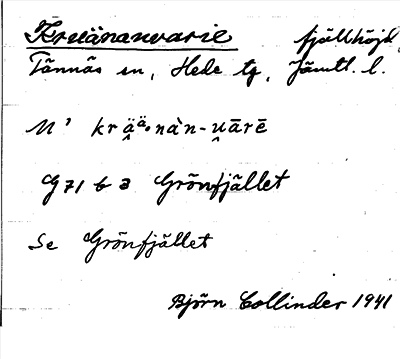 Kruänanvarie fjällhöjd
Tännäs sn, Hede tg, Jämtl. l.
M' krä̯äₒnàn-u̯ārē
G 71 b a Grönfjället
Se Grönfjället
Björn Collinder 1941